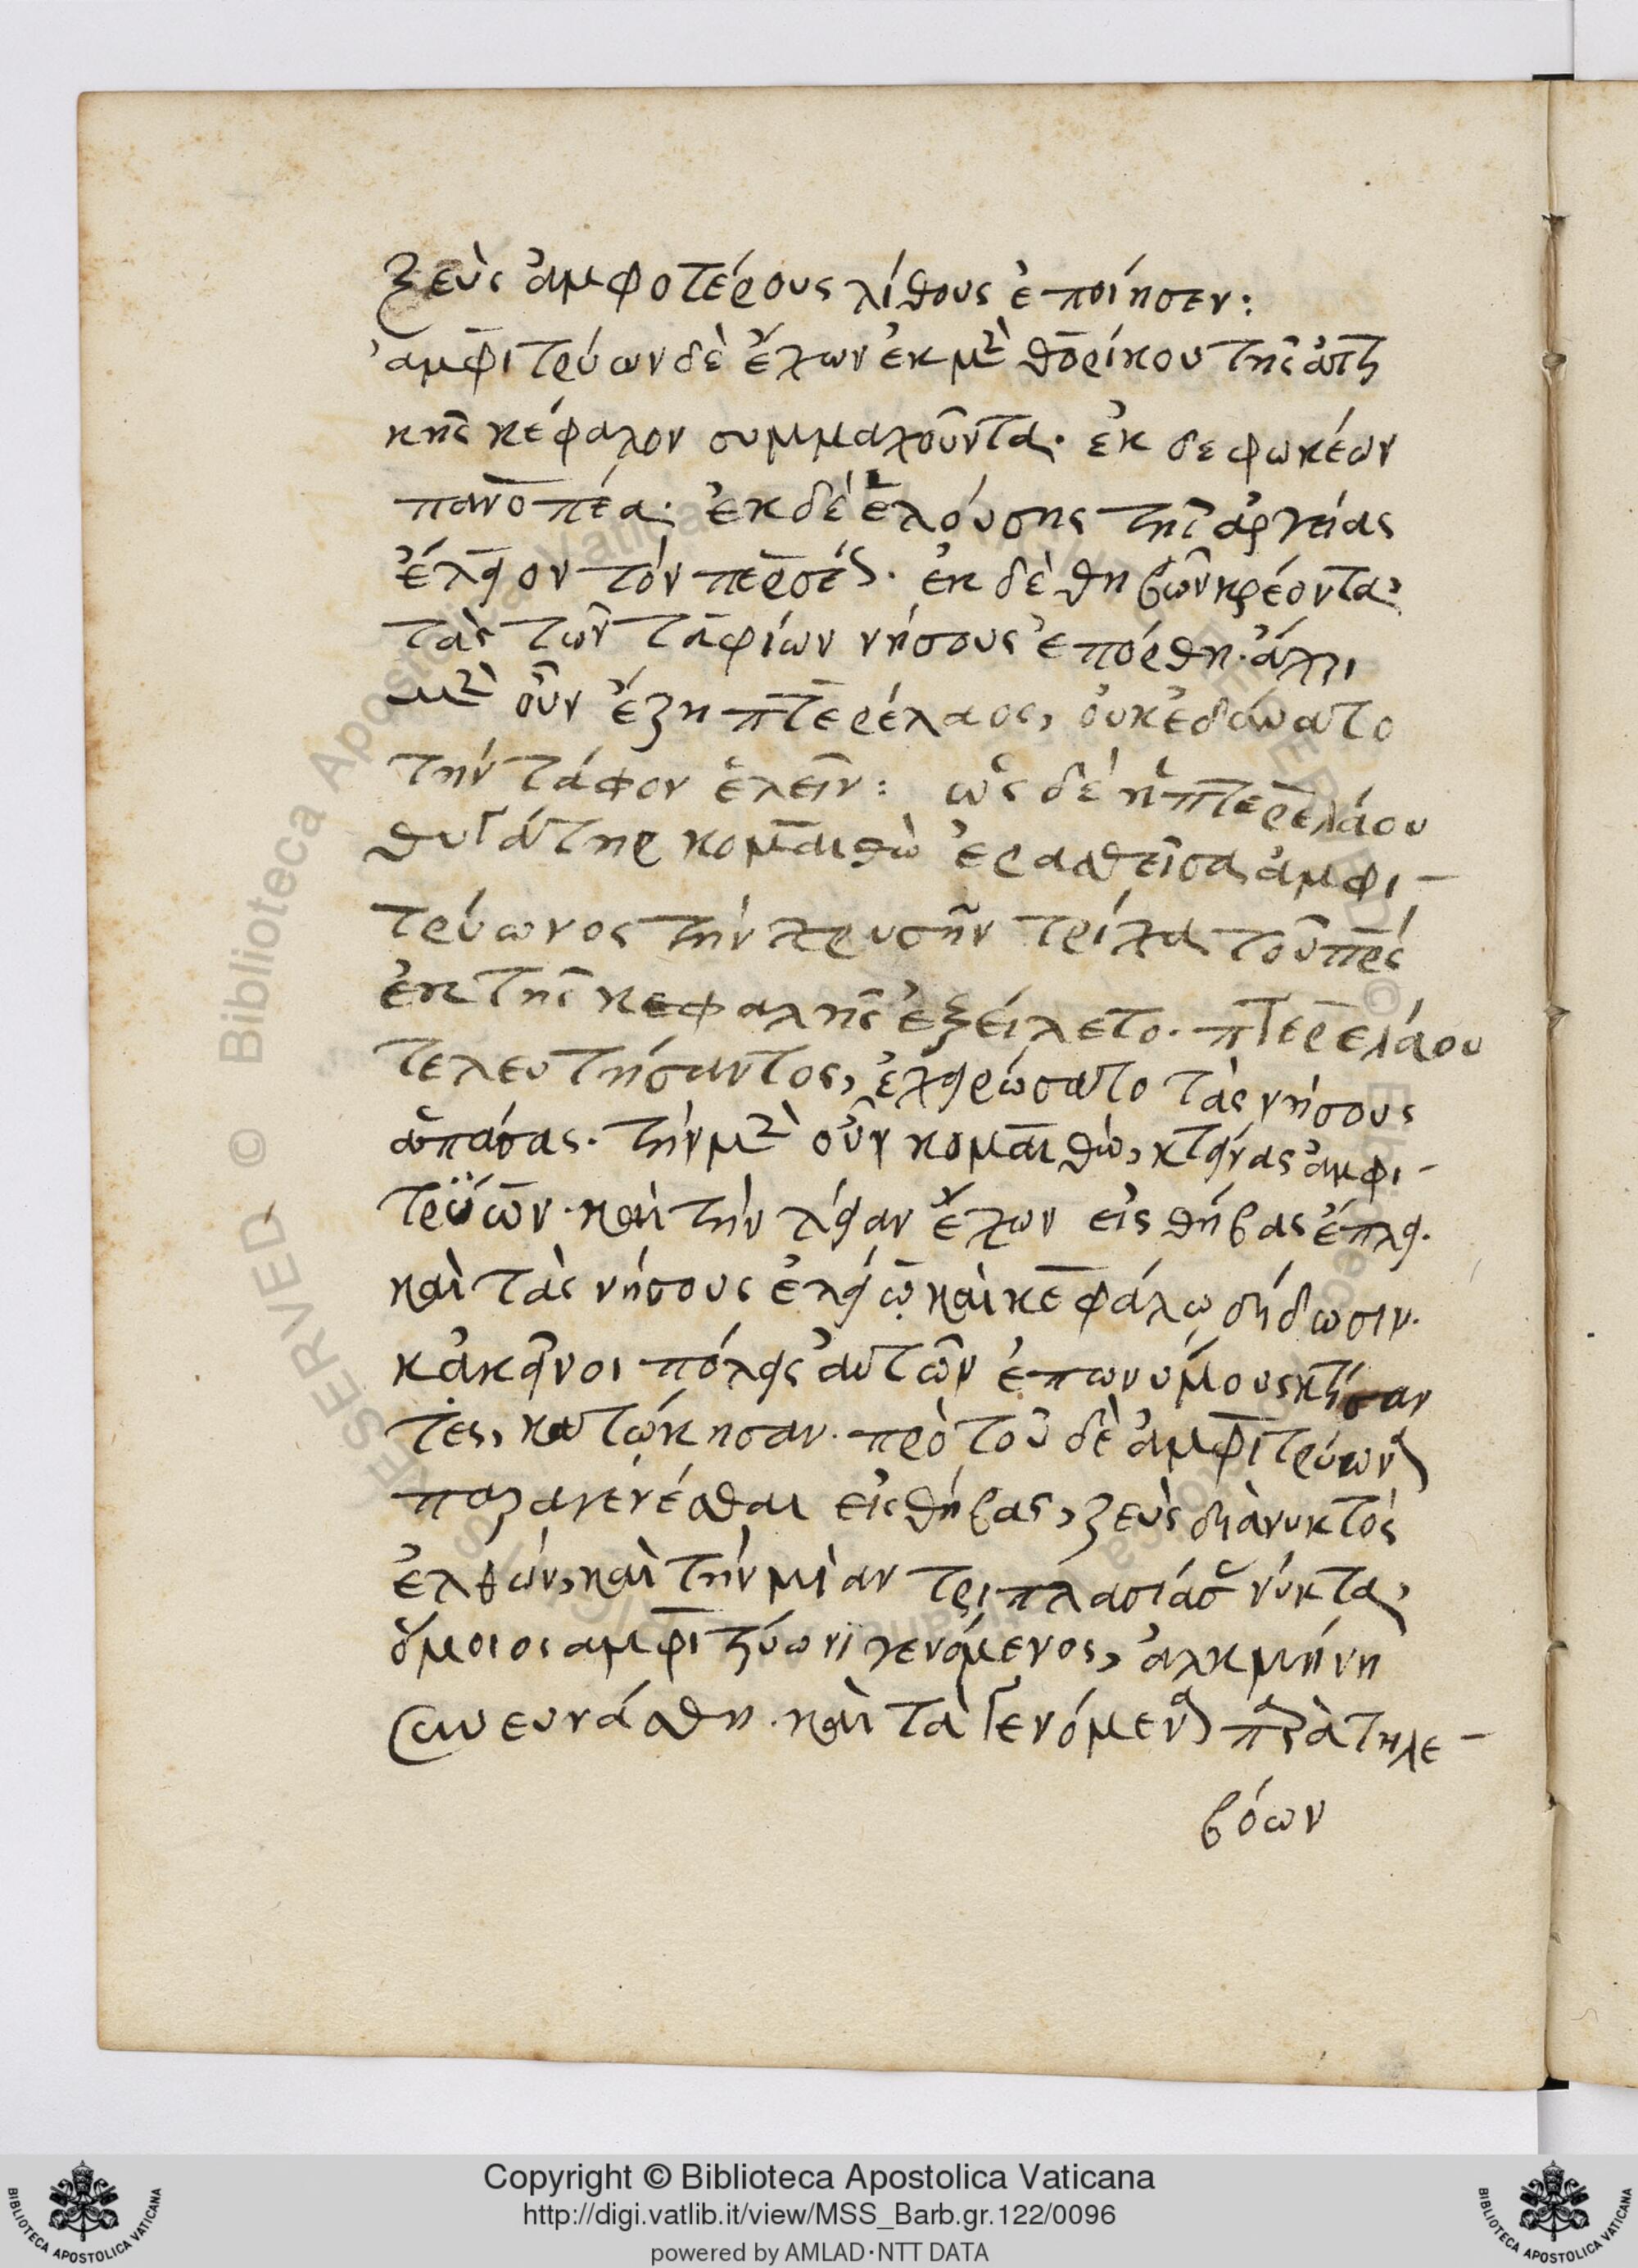 ζεὺς ἀμφοτέρους λίθους ἐποίησεν:
ἀμφιτρύων δὲ ἔχων ἐκ μὲν θορίκου τῆς ἀττι
κῆς κέφαλον συμμαχοῦντα· ἐκ δε φωκέων
πανοπέα· ἐκ δὲ ἑλούσης τῆς ἀργείας
ἕλειον τὸν περσέως· ἐκ δὲ θηβῶν κρέοντα,
τὰς τῶν ταφίων νήσους ἐπόρθη· ἄχρι
μὲν οὖν ἔζη πτερέλαος, οὐκ ἐδύνατο
τὴν τάφον ἑλεῖν: ὡς δὲ ἡ πτερελάου
θυγάτηρ κομαιθὼ ἐρασθεῖσα ἀμφι-
τρύωνος τὴν χρυσῆν τρίχα τοῦ πρς
ἐκ τῆς κεφαλῆς ἐξείλετο· πτερελάου
τελευτήσαντος, ἐχειρώσατο τὰς νήσους
ἁπάσας. τὴν μὲν οὖν κομαιθὼ, κτείνας ἀμφι-
τρύων· καὶ τὴν λείαν ἔχων εἰς θήβας ἔπλει.
καὶ τὰς νήσους ἐλείω καὶ κεφάλω δίδωσιν.
κἀκεῖνοι πόλεις αὐτῶν ἐπωνύμους κτίσαν
τες, κατώκησαν. πρὸ τοῦ δὲ ἀμφιτρύωνα
παραγενέσθαι εἰς θήβας, ζεὺς διὰ νυκτὸς
ἐλθών, καὶ τὴν μίαν τριπλασιάσας νύκτα,
ὅμοιος αμφιτρύωνι γενόμενος, ἀλκμήνη
συνευνάσθη· καὶ τὰ γενόμενα παρὰ τηλε-
βόων
Copyright © Biblioteca Apostolica Vaticana
http://digi.vatlib.it/view/MSS_Barb.gr.122/0096
powered by AMLAD·NTT DATA